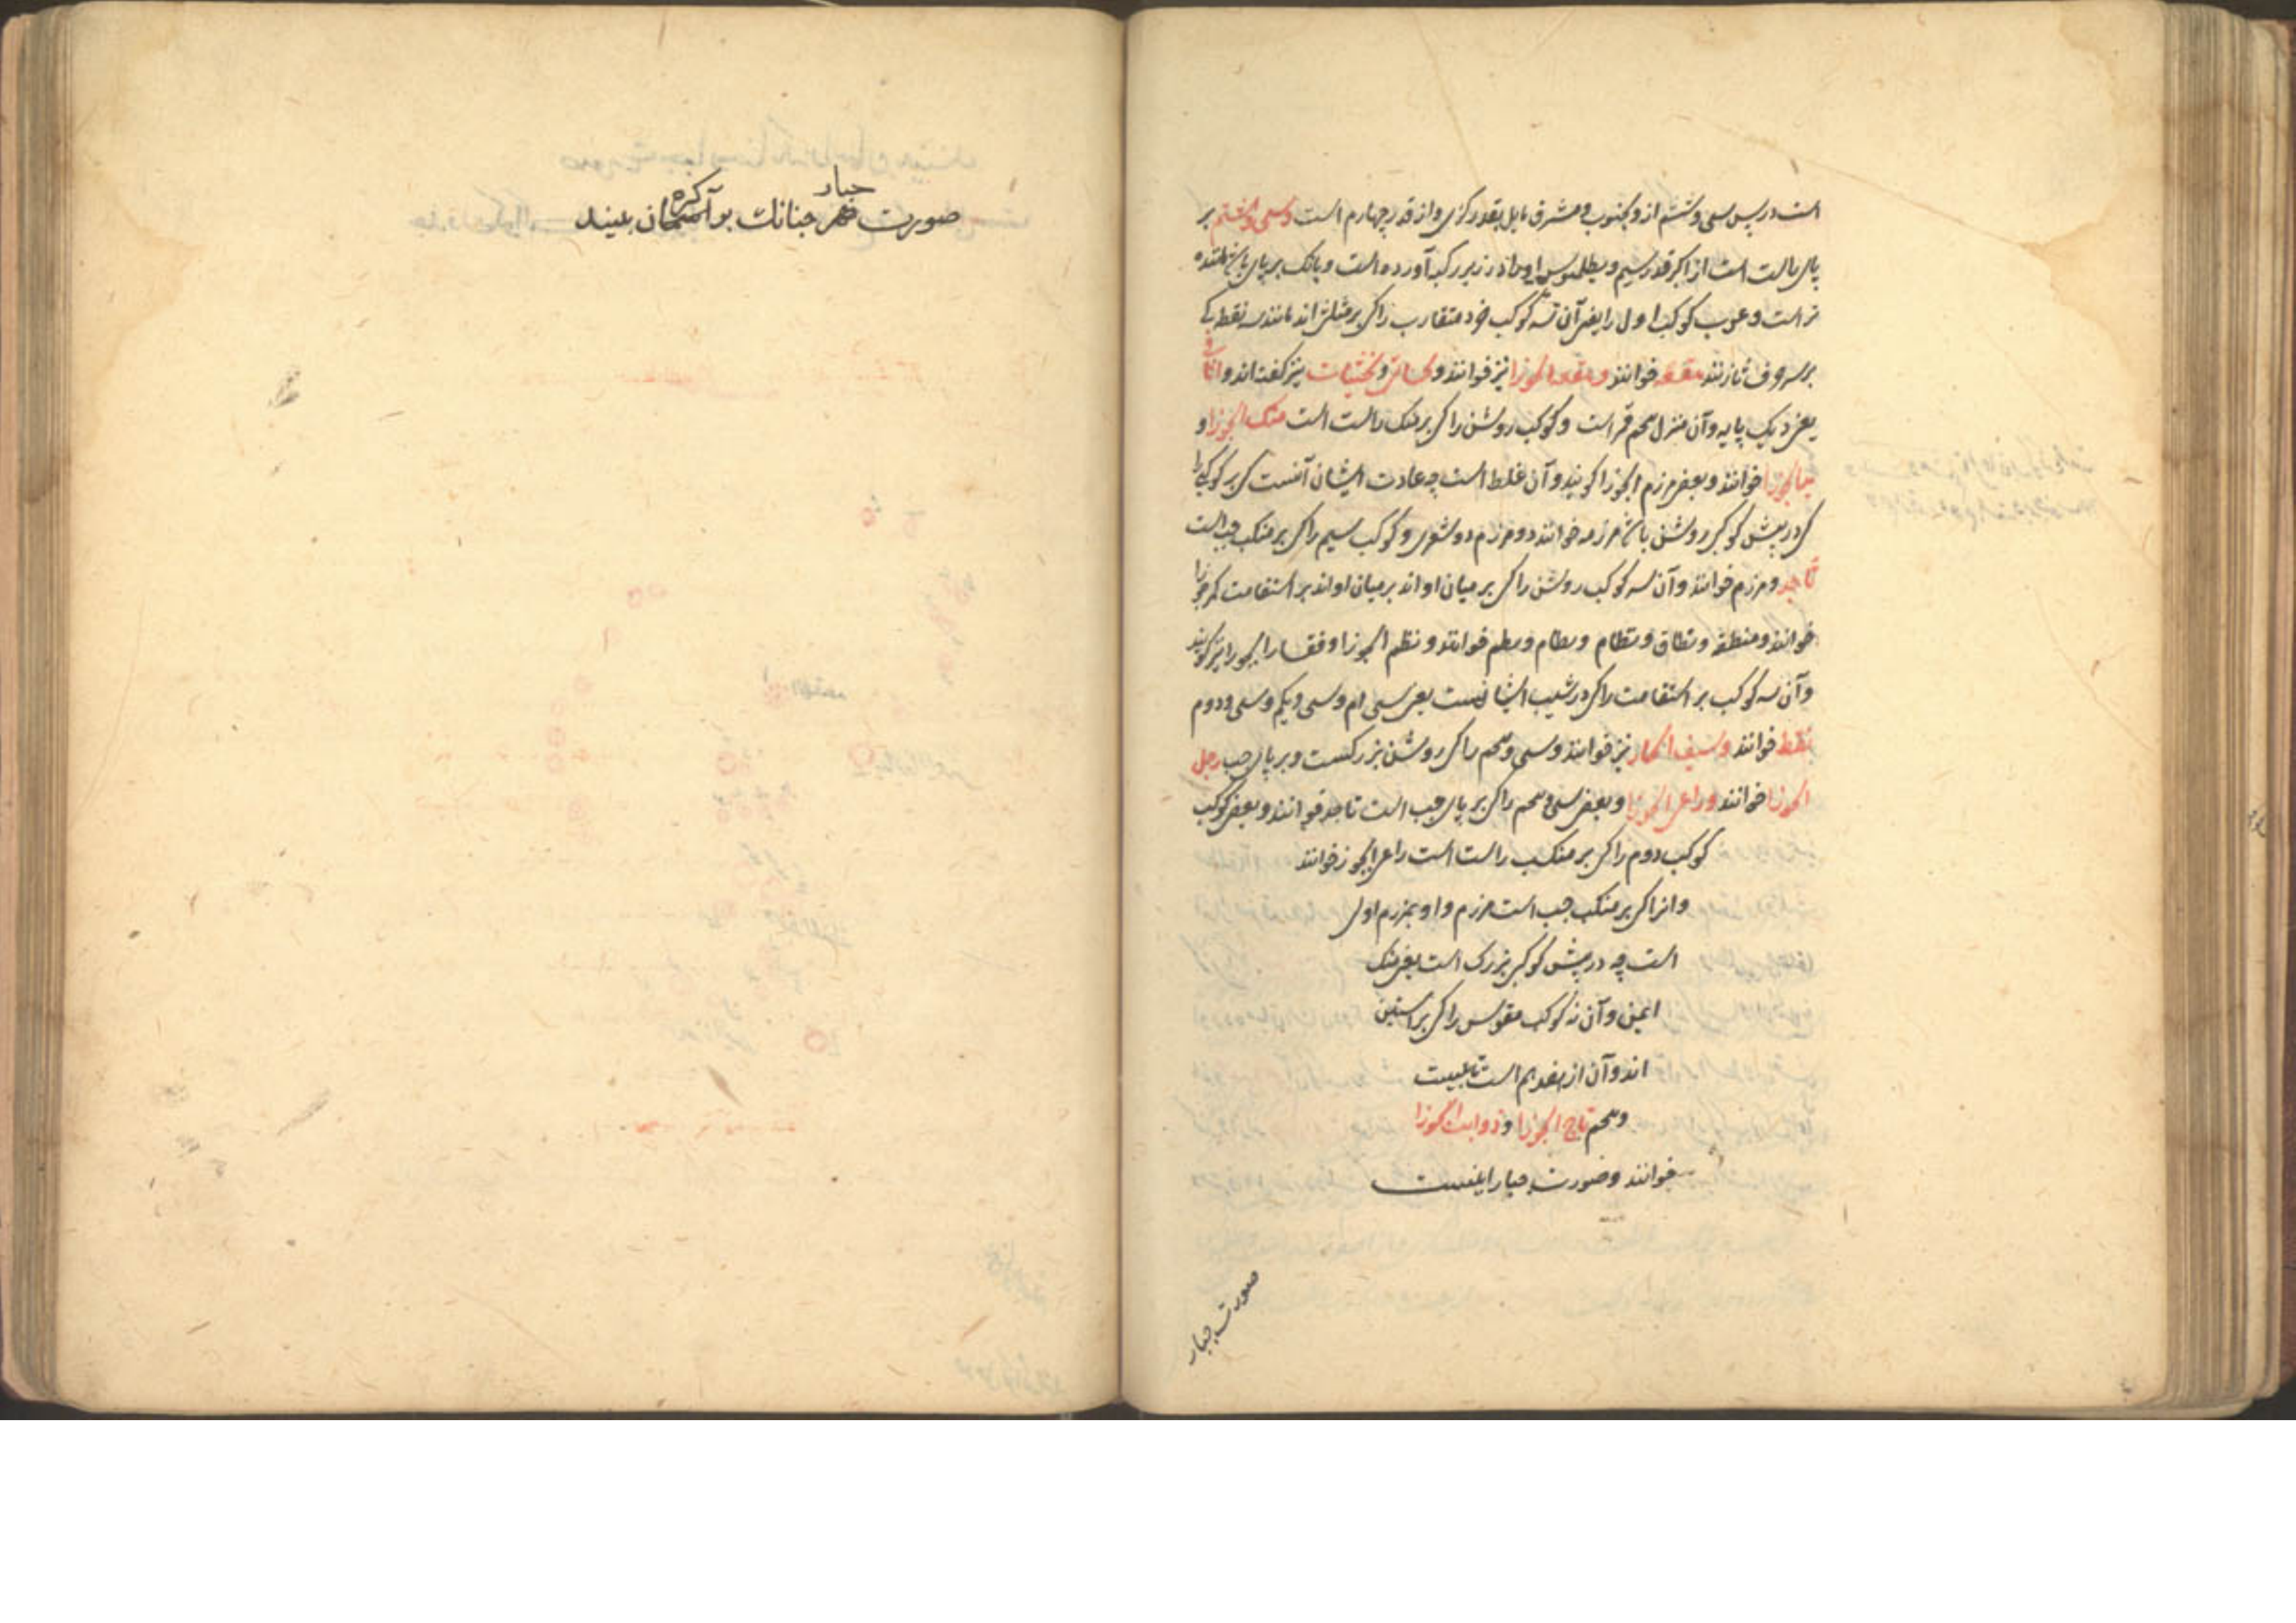 است در پس سی و ششم ازو بجنوب و مشرق مایل بقدر کزی و از قدر چهارم است وسی و هشتم بر
پای راست است از اکبر قدر سیم و بطلمیوس او را در زیر رکبه آورده است و بر پای
تر است و عرب کوکب اول را یعنی آن سه کوکب خرد متقارب را کی بر مثلث اند مانند سه نقطه کی
بر سر حرف ثا زنند هقعه خوانند و هقعة الجوزا نیز خوانند و تحیاتی و تحیات نیز کفته اند و اثافی
یعنی دیک پایه و آن منزل پنجم قمر است و کوکب روشن را کی بر منکب راست است منکب الجوزا و
ید الجوزا خوانند و بعضی مرزم الجوزا کویند و آن غلط است چه عادت ایشان آنست کی هر کوکبی را
کی در پیش کوکبی روشن باشد مرزم خوانند دو مرزم دو شعری و کوکب سیم را کی بر منکب چب است
ناجد و مرزم خوانند و آن سه کوکب روشن را کی بر میان او اند بر میان او اند بر استقامت کمر جوزا
خوانند و منطقه و نطاق و نظام و نظم خوانند و نظم الجوزا و فقار الجوزا نیز کویند
و آن سه کوکب بر استقامت را کی در شیب ایشانست یعنی سی ام و سی و یکم و سی و دوم
لقط خوانند و سیف الجبار نیز خوانند و سی و پنجم را کی روشن بزرکست و بر پای چب رجل
الجوزا خوانند و راعی الجوزا و بعضی سی و پنجم را کی بر پای چب است ناجد خوانند و بعضی کوکب
کوکب دوم را کی بر منکب راست است راعی الجوزا خوانند
و انرا کی بر منکب چب است مرزم و او بمرزم اولی
است چه در پیش کوکبی بزرک است یعنی منکب
ایمن و آن نه کوکب مقوس را کی بر آستین
اند و آن از هفدهم است تا بیست
و پنجم تاج الجوزا و ذوایب الجوزا
خوانند و صورت جبار اینست
صورت جبار
جبار کره
صورت جنانک بر آسمان بینند